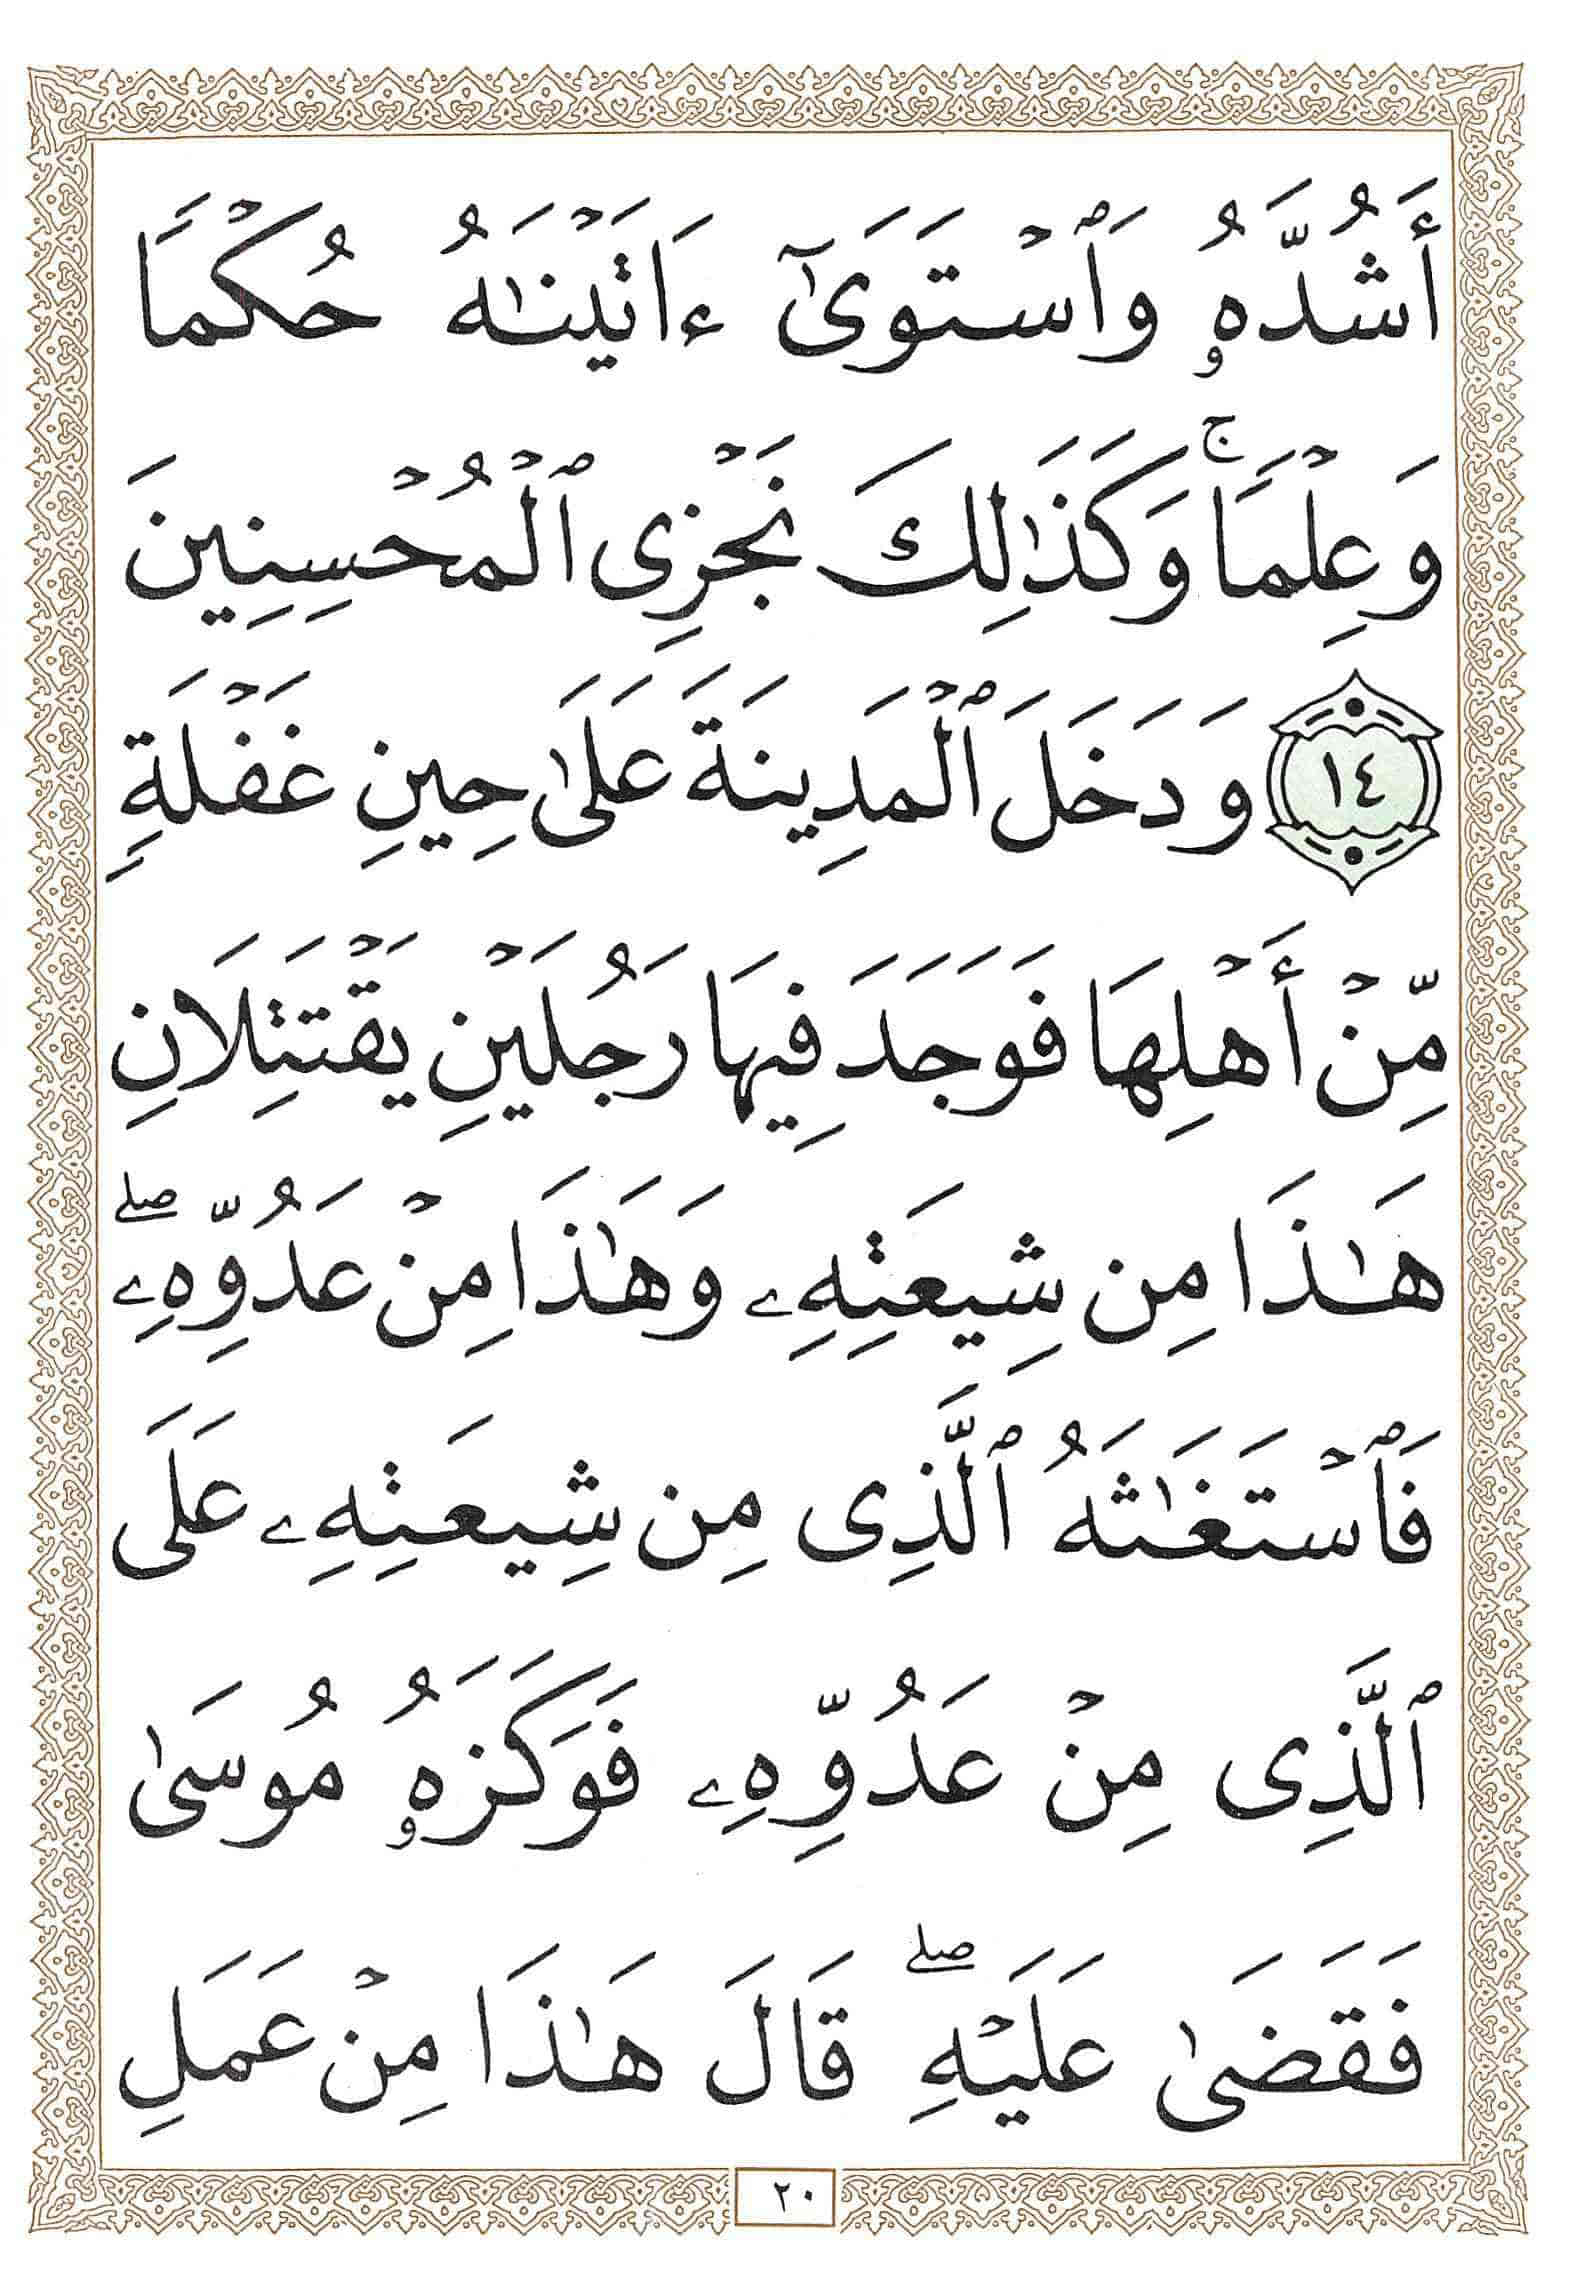 أَشُدَّهُۥ وَٱسۡتَوَىٰٓ ءَاتَيۡنَٰهُ حُكۡمًا
وَعِلۡمًاۚ وَكَذَٰلِكَ نَجۡزِى ٱلۡمُحۡسِنِينَ
١٤ وَدَخَلَ ٱلۡمَدِينَةَ عَلَىٰ حِينِ غَفۡلَةٍ
مِّنۡ أَهۡلِهَا فَوَجَدَ فِيهَا رَجُلَيۡنِ يَقۡتَتِلَانِ
هَٰذَا مِن شِيعَتِهِۦ وَهَٰذَا مِنۡ عَدُوِّهِۦۖ
فَٱسۡتَغَٰثَهُ ٱلَّذِى مِن شِيعَتِهِۦ عَلَى
ٱلَّذِى مِنۡ عَدُوِّهِۦ فَوَكَزَهُۥ مُوسَىٰ
فَقَضَىٰ عَلَيۡهِۖ قَالَ هَٰذَا مِنۡ عَمَلِ
٢٠